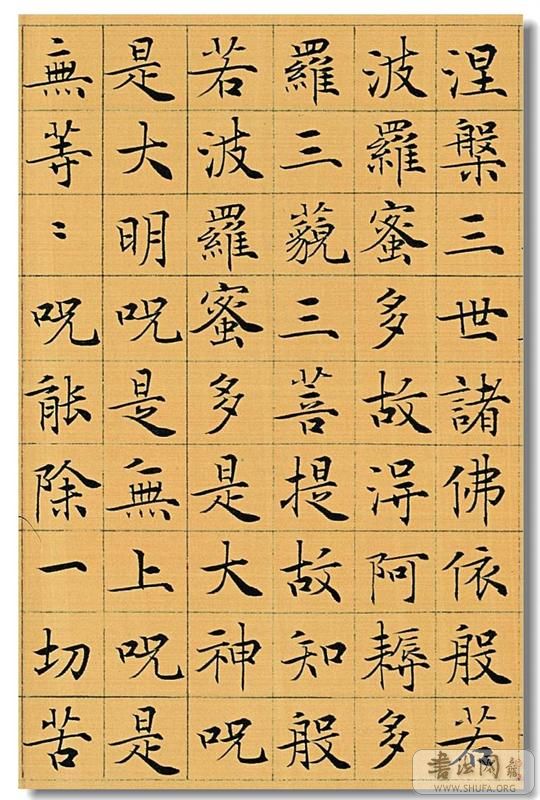 涅槃三世諸佛依般若
波羅蜜多故得阿耨多
羅三藐三菩提故知般
若波羅蜜多是大神呪
是大明呪是無上呪是
無等〻呪能除一切苦
書法网
WWW.SHUFA.ORG